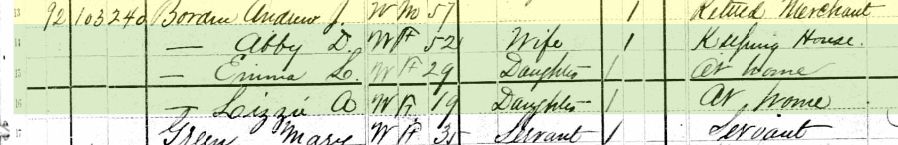 13 92 103 240 Borden Andrew J. W M 57 1 Retired Merchant
14 — Abby D. W F 52 Wife 1 Keeping House.
15 — Emma L. W F 29 Daughter 1 At home
16 — Lizzie A W F. 19 Daughter 1 At home
17 Green Mary W F 35 Servant 1 Servant